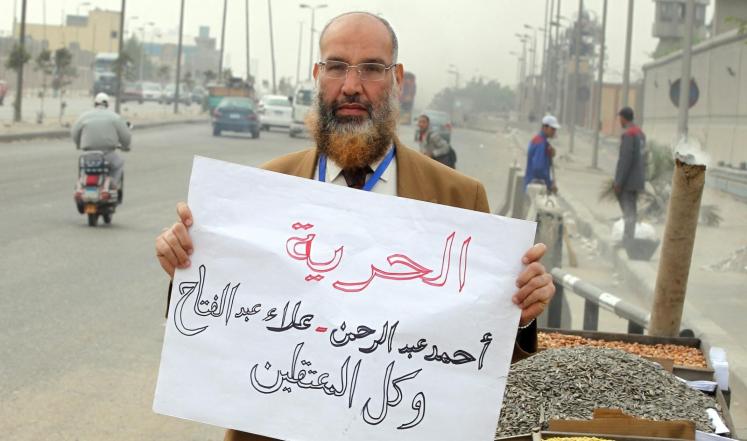 الحرية
أحمد عبد الرحمن - علاء عبد الفتاح
وكل المعتقلين